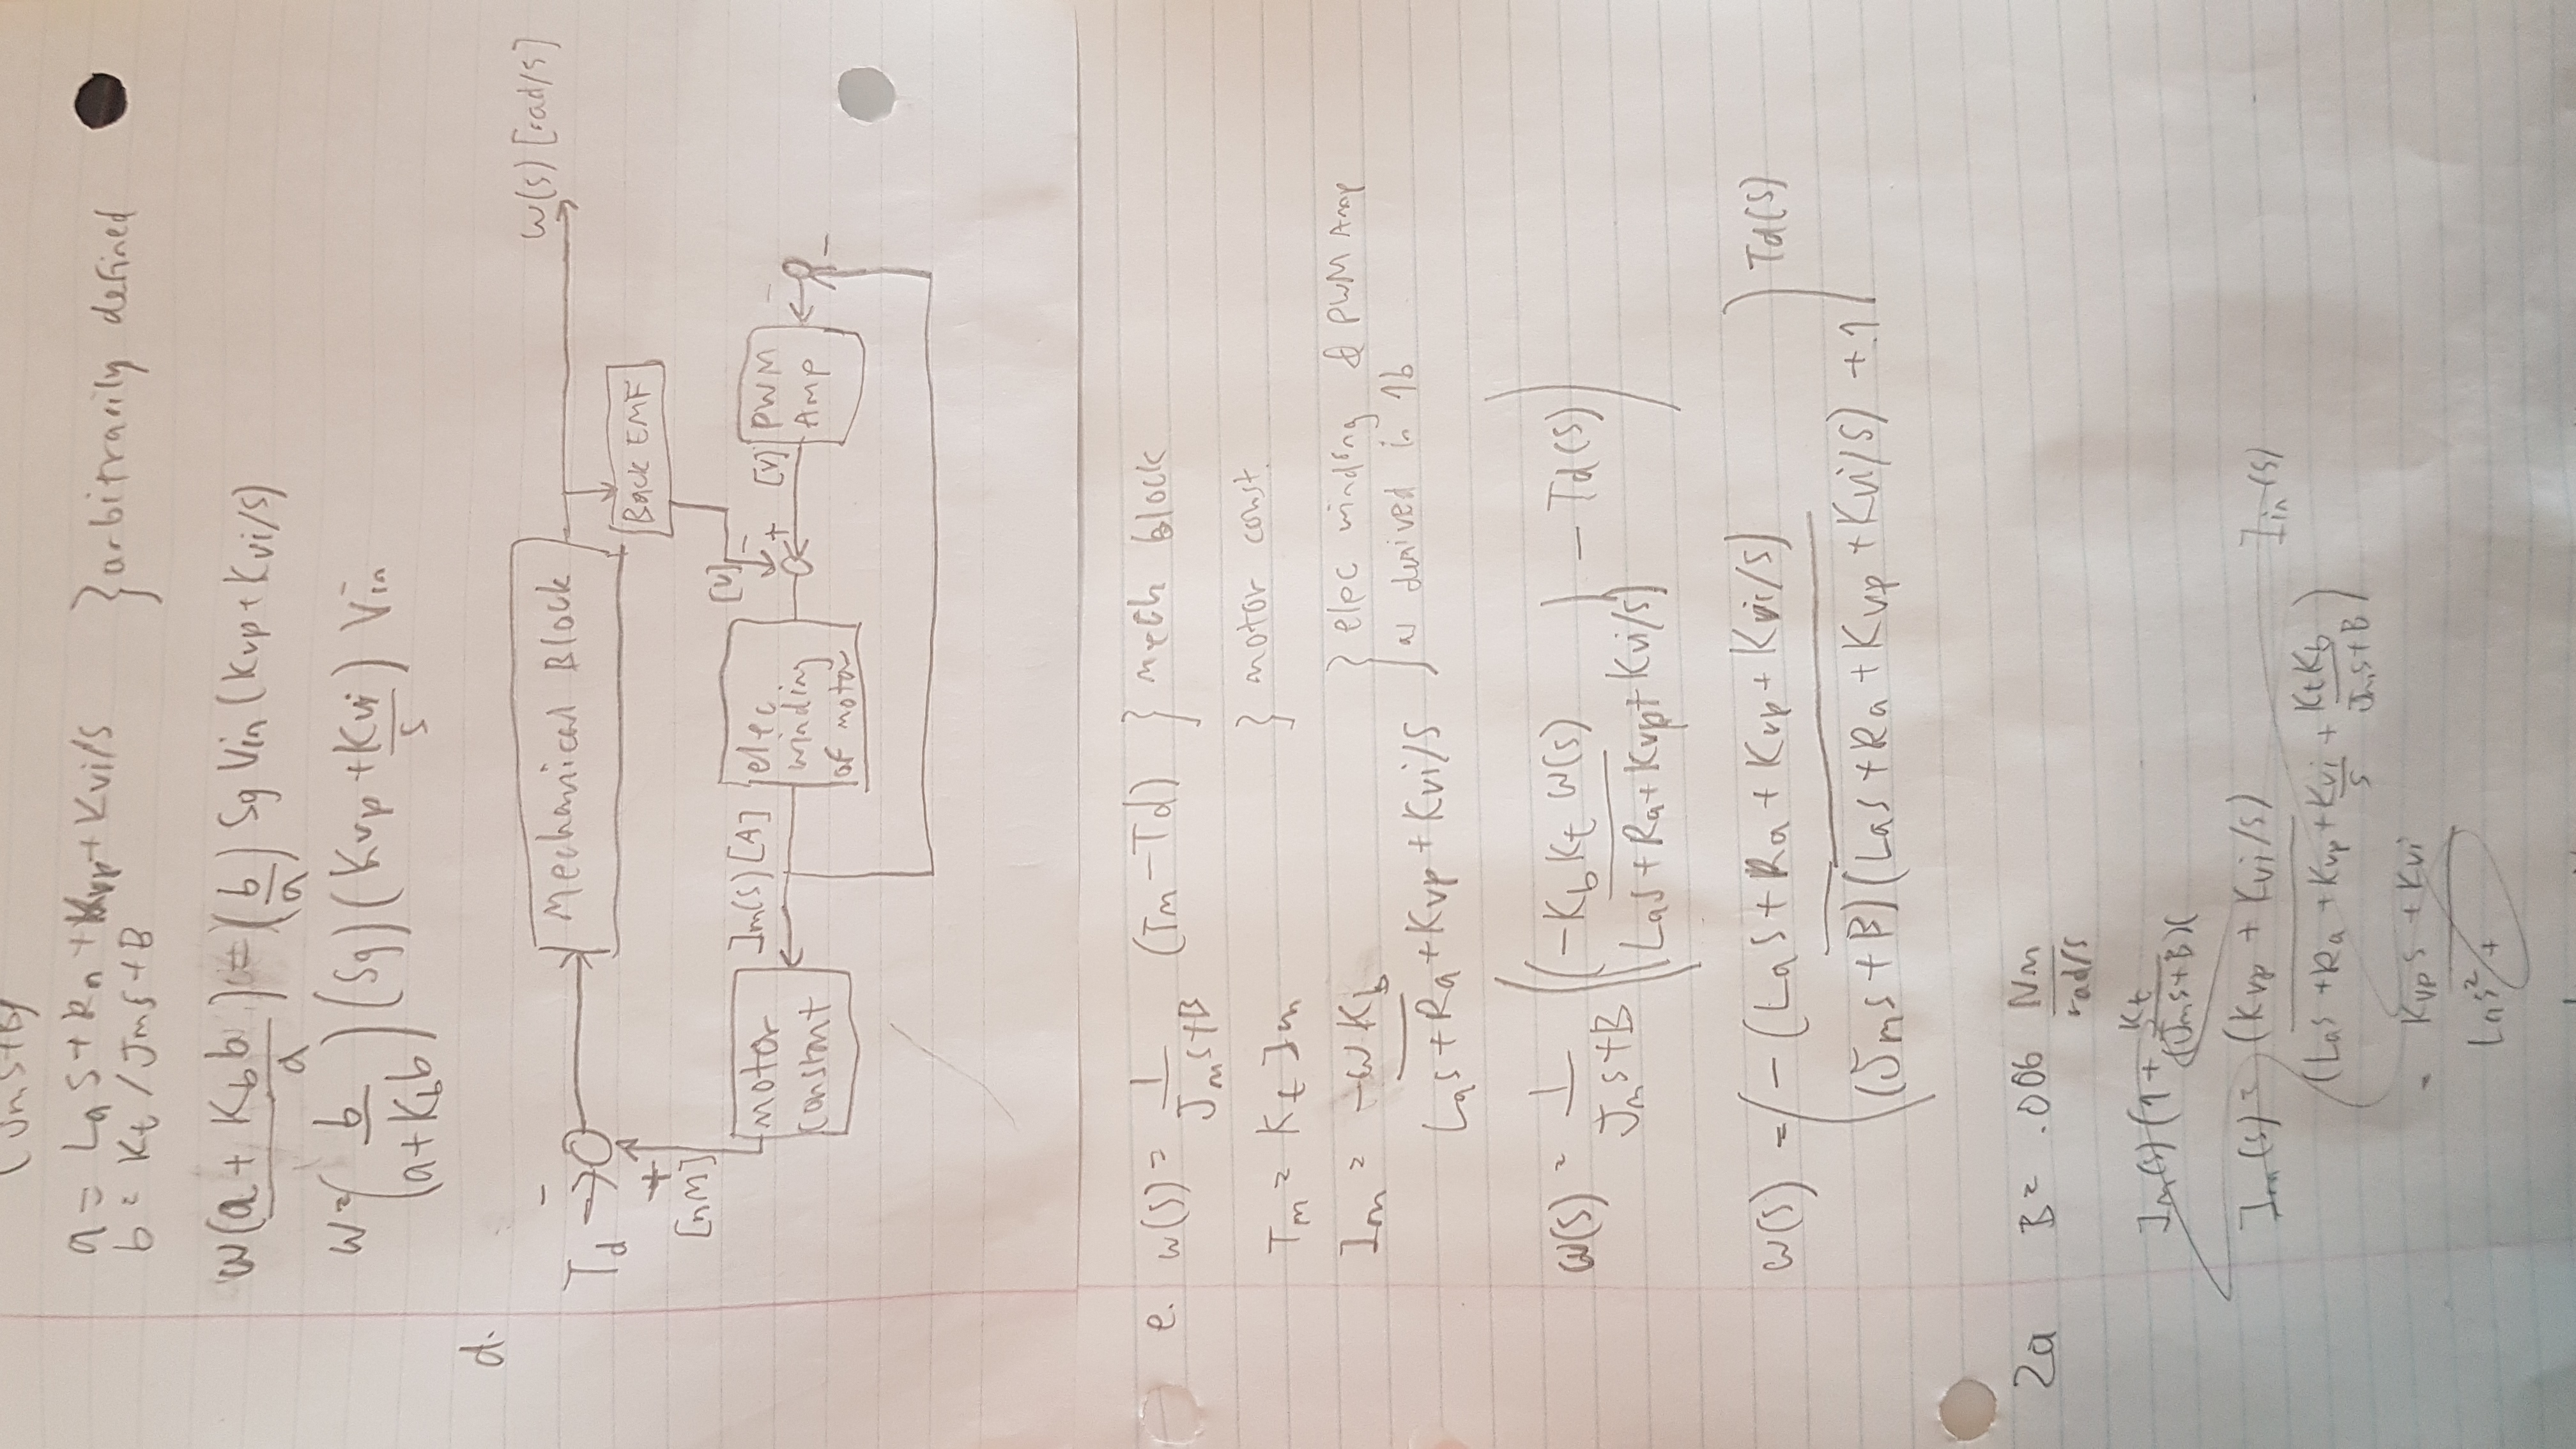 (Jms+B)
a = Las + Ra + Kvp + Kvi/s } arbitrarily defined
b = Kt / Jms + B
w(a + Kb b / a) = (b/a) Sg Vin (Kvp + Kvi/s)
w = (b / (a + Kb b)) (Sg) (Kvp + Kvi/s) Vin
d.
Td - Mechanical Block w(s) [rad/s]
+ Back EMF
[nM] [V] -
motor constant Im(s) [A] elec winding of motor + [V] PWM Amp - -
e. w(s) = 1/(Jms+B) (Tm - Td) } mech block
Tm = Kt Im } motor const.
Im = -wKb / Las + Ra + Kvp + Kvi/s } elec winding & PWM Amp
as derived in 1b
w(s) = 1/(Jms+B) ((-Kb Kt w(s) / Las + Ra + Kvp + Kvi/s) - Td(s))
w(s) = (-(Las + Ra + Kvp + Kvi/s) / (Jms + B)(Las + Ra + Kvp + Kvi/s) + 1) Td(s)
2a B = .006 Nm / rad/s
Im(s) (1 + Kt / (Jms+B)(
Im(s) = (Kvp + Kvi/s) / (Las + Ra + Kvp + Kvi/s + KtKb / Jms+B) Iin(s)
- Kvps + Kvi / Las² +